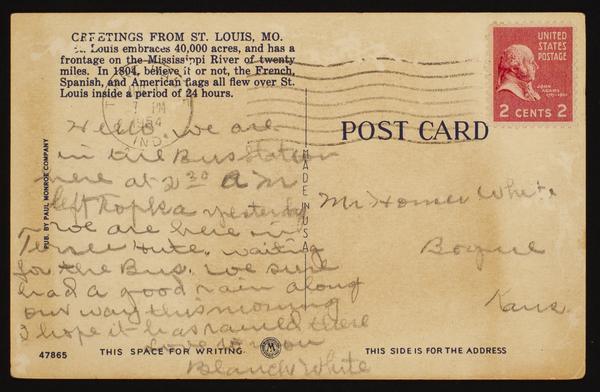 GREETINGS FROM ST. LOUIS, MO.
St. Louis embraces 40,000 acres, and has a
frontage on the Mississippi River of twenty
miles. In 1804, believe it or not, the French,
Spanish, and American flags all flew over St.
Louis inside a period of 24 hours.
7 PM
1954
IND.
UNITED
STATES
POSTAGE
JOHN
ADAMS
1797-1801
2 CENTS 2
POST CARD
PUB. BY PAUL MONROE COMPANY
MADE IN U.S.A.
Hello, we are
in the Bus Station
here at 2 30 A M
left Topka yesterday
we are here in
Terree Hute. waiting
for the Bus. we sure
had a good rain along
our way this morning
I hope it has rained there
love to you
Blanch White
Mr Homer White
Bogue
Kans.
47865
THIS SPACE FOR WRITING
THIS SIDE IS FOR THE ADDRESS